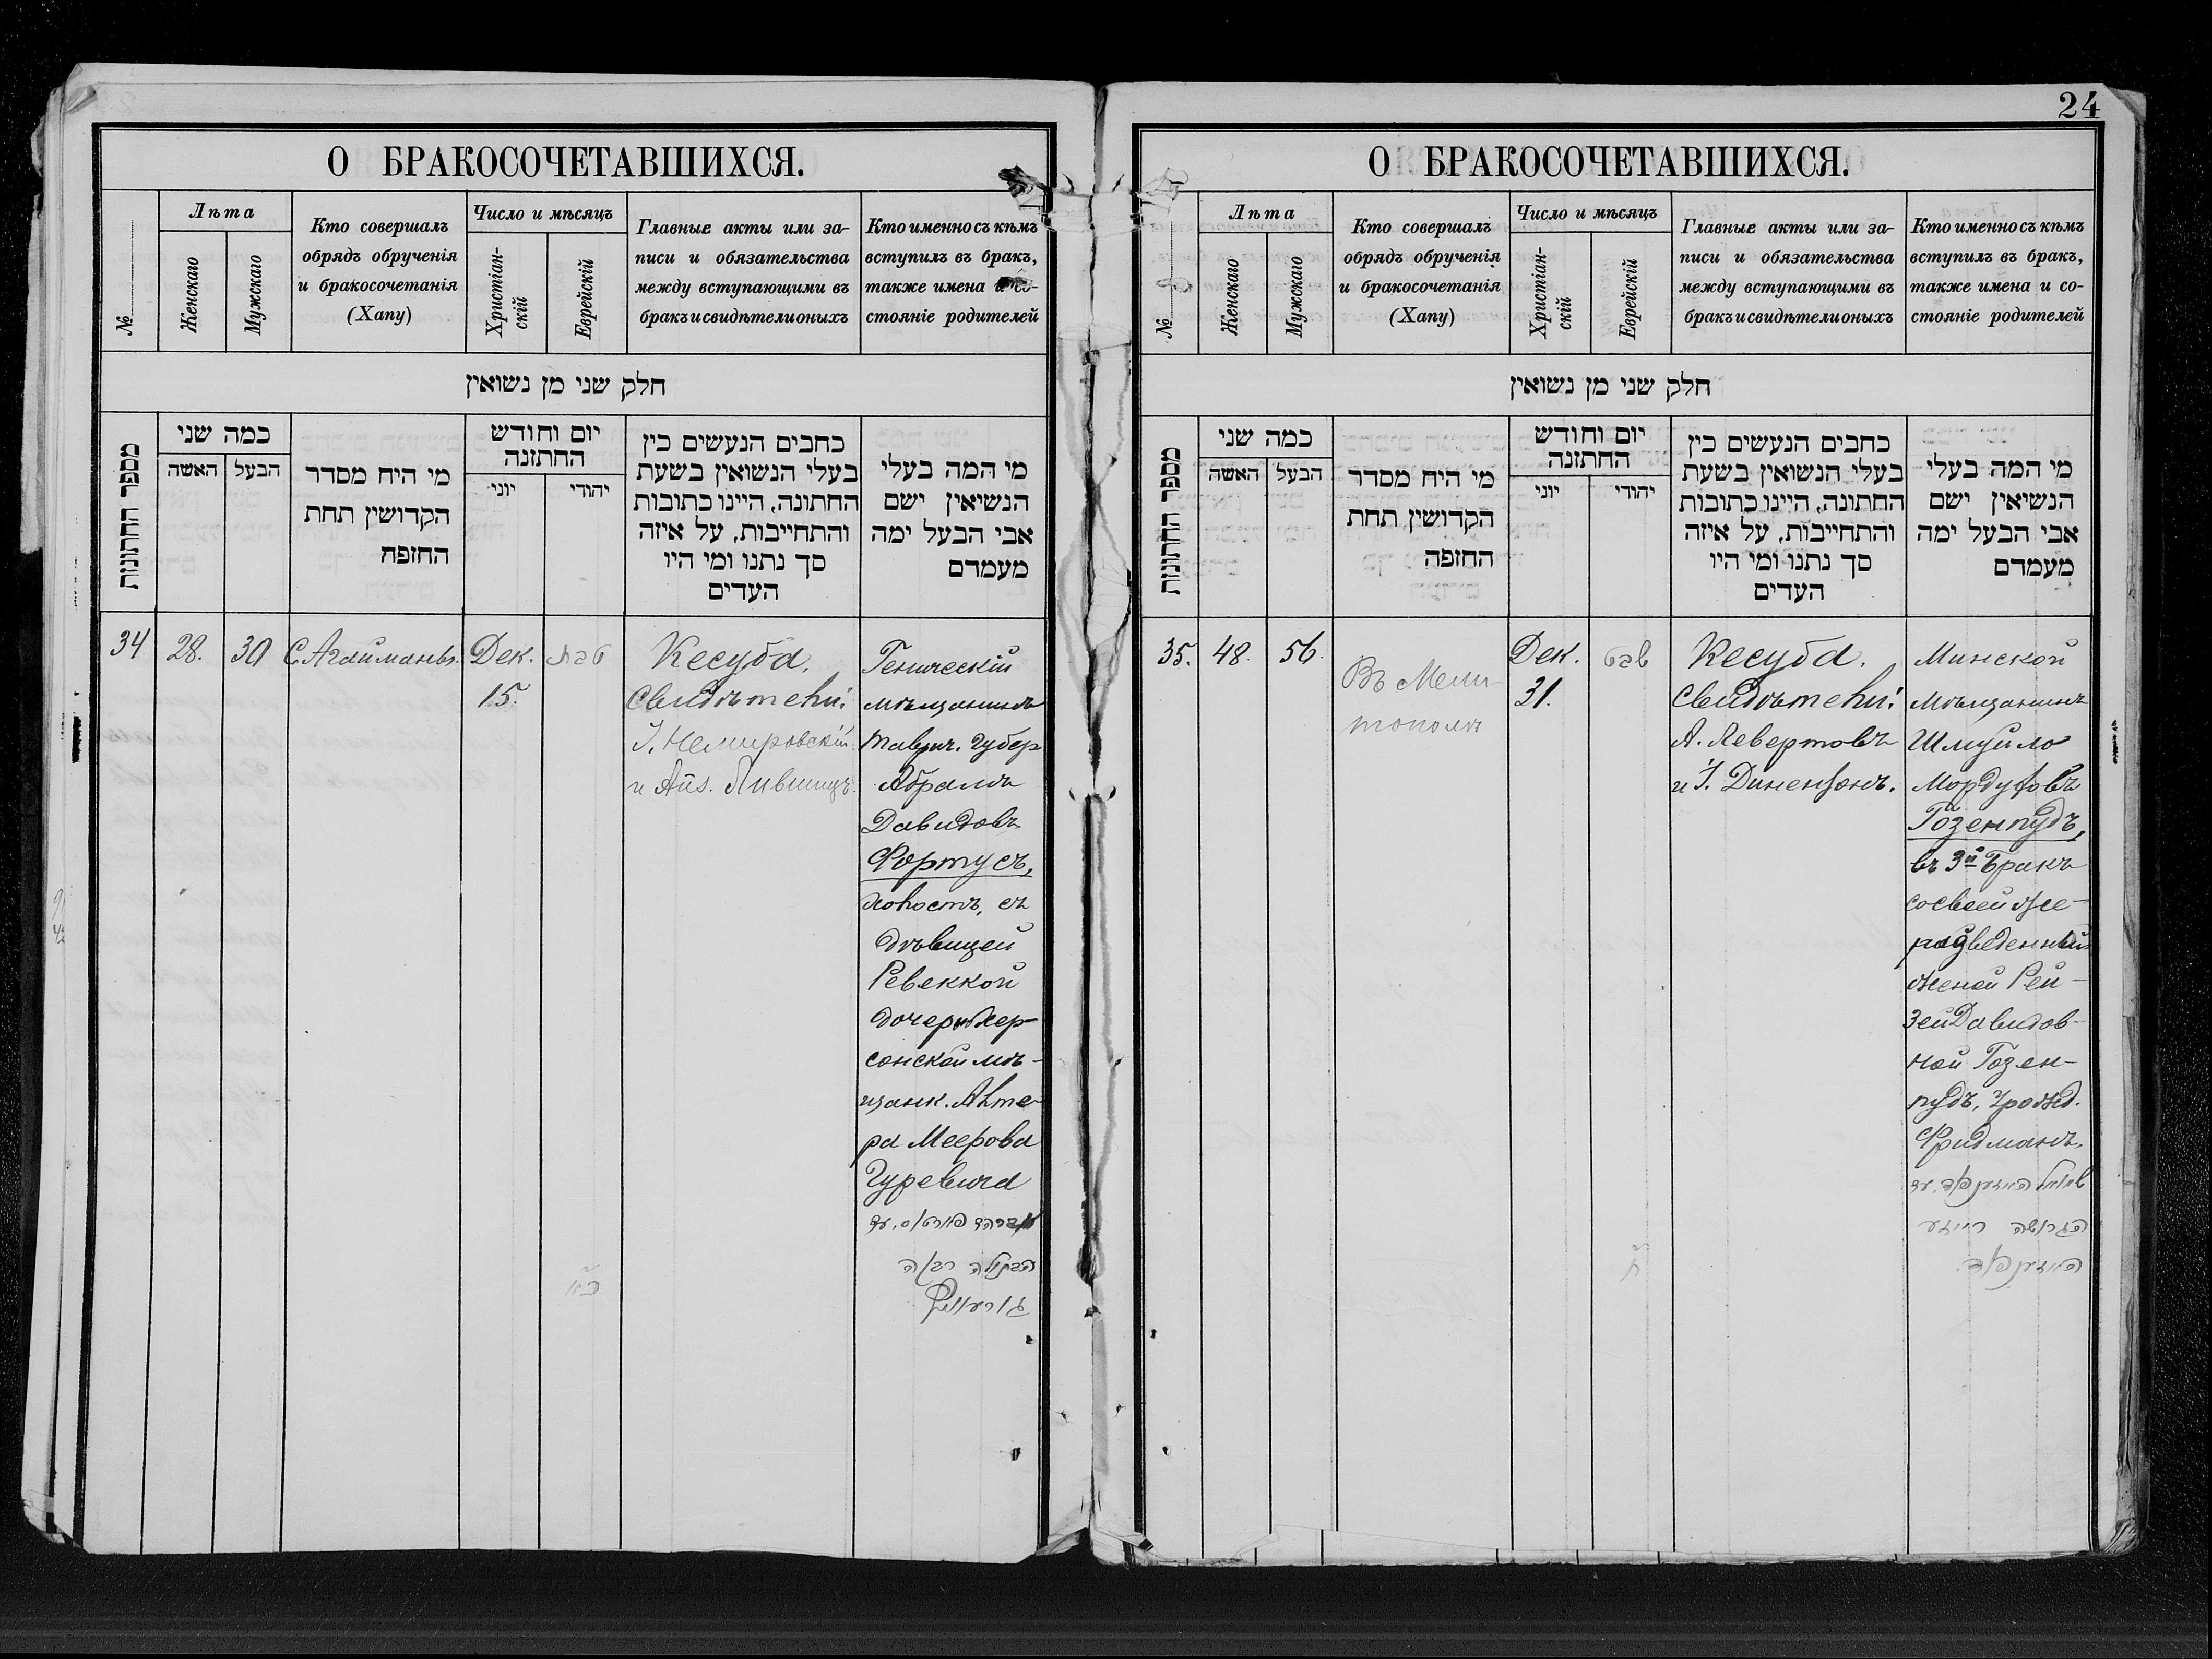 24
О БРАКОСОЧЕТАВШИХСЯ.
№
Лѣта
Женскаго
Мужскаго
Кто совершалъ
обрядъ обрученія
и бракосочетанія
(Хапу)
Число и мѣсяцъ
Христіан-
скій
Еврейскій
Главные акты или за-
писи и обязательства
между вступающими въ
бракъ и свидѣтели оныхъ
Кто именно съ кѣмъ
вступилъ въ бракъ,
также имена и со-
стояніе родителей
חלק שני מן נשואין
מספר החתונות
כמה שני
האשה
הבעל
מי היח מסדר
הקדושין תחת
החזפה
יום וחודש
החתזנה
יוני
יהודי
כחבים הנעשים כין
בעלי הנשואין בשעת
החתונה, היינו כתובות
והתחייבות, על איזה
סך נתנו ומי היו
העדים
מי המה בעלי
הנשיאין ישם
אבי הבעל ימה
מעמדם
34
28.
30
С. Агайманъ.
Дек.
15.
טבת
Кесуба.
Свидѣтели:
І. Немировскій
и Лившицъ.
Геническій
мѣщанинъ
Таврич. Губер
Абрамъ
Давидовъ
Фортусъ,
холостъ, съ
дѣвицей
Ревеккой
дочерью Хер-
сонской мѣ-
щанк. Алте-
ра Меерова
Гуревича
אברהם פורטוס, עם
הבתולה רבקה
גורעוויץ
О БРАКОСОЧЕТАВШИХСЯ.
№
Лѣта
Женскаго
Мужскаго
Кто совершалъ
обрядъ обрученія
и бракосочетанія
(Хапу)
Число и мѣсяцъ
Христіан-
скій
Еврейскій
Главные акты или за-
писи и обязательства
между вступающими въ
бракъ и свидѣтели оныхъ
Кто именно съ кѣмъ
вступилъ въ бракъ,
также имена и со-
стояніе родителей
חלק שני מן נשואין
מספר החתונות
כמה שני
האשה
הבעל
מי היח מסדר
הקדושין תחת
החזפה
יום וחודש
החתזנה
יוני
יהודי
כחבים הנעשים כין
בעלי הנשואין בשעת
החתונה, היינו כתובות
והתחייבות, על איזה
סך נתנו ומי היו
העדים
מי המה בעלי
הנשיאין ישם
אבי הבעל ימה
מעמדם
35.
48.
56.
Въ Мели-
тополѣ
Дек.
31.
שבט
Кесуба.
Свидѣтели:
А. Левертовъ
и І. Динензонъ.
Минской
мѣщанинъ
Шмуйло
Мордуховъ
Гозенпудъ,
въ 3й бракъ
со своей же
разведенной
женой Рей-
зей Давидов-
ной Гозен-
пудъ, урожд.
Фридманъ.
שמואל האזענפוד, עם
הגרושה רייזע
האזענפוד.